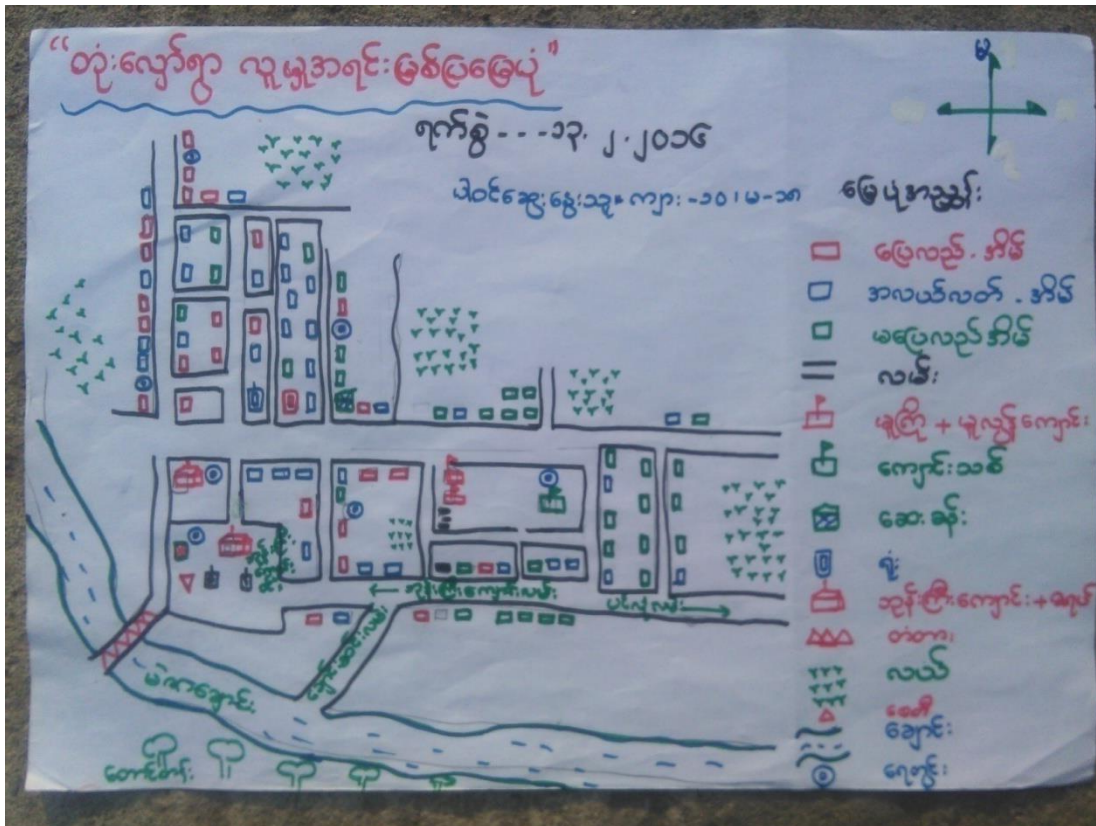 "တုံးလျှော်ရွာ လူမှုအရင်းမြစ်ပြမြေပုံ"
မ
ရက်စွဲ - - - ၁၃. ၂. ၂၀၁၆
ပါဝင်ဆွေးနွေးသူ ကျား - ၁၀၊ မ - ၁၈
မြေပုံအညွှန်း
ပြေလည် . အိမ်
အလယ်လတ် . အိမ်
မပြေလည်အိမ်
လမ်း
မူကြို + မူလွန်ကျောင်း
ကျောင်းသစ်
ဆေးခန်း
ရုံး
ဘုန်းကြီးကျောင်း +
တံတား
လယ်
စေတီ
ချောင်း
ရေတွင်း
ဘုန်းကြီးကျောင်းလမ်း
ပင်လုံလမ်း
ချောင်းဆင်းလမ်း
ချောင်း
တောင်တန်း